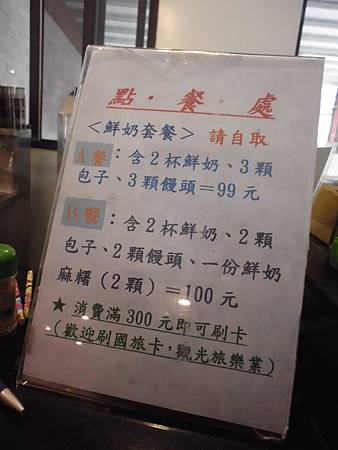 點・餐・處
＜鮮奶套餐＞ 請自取
A餐：含2杯鮮奶、3顆
包子、3顆饅頭＝99元
B餐：含2杯鮮奶、2顆
包子、2顆饅頭、一份鮮奶
麻糬（2顆）＝100元
★ 消費滿300元即可刷卡
（歡迎刷國旅卡,觀光旅樂業）